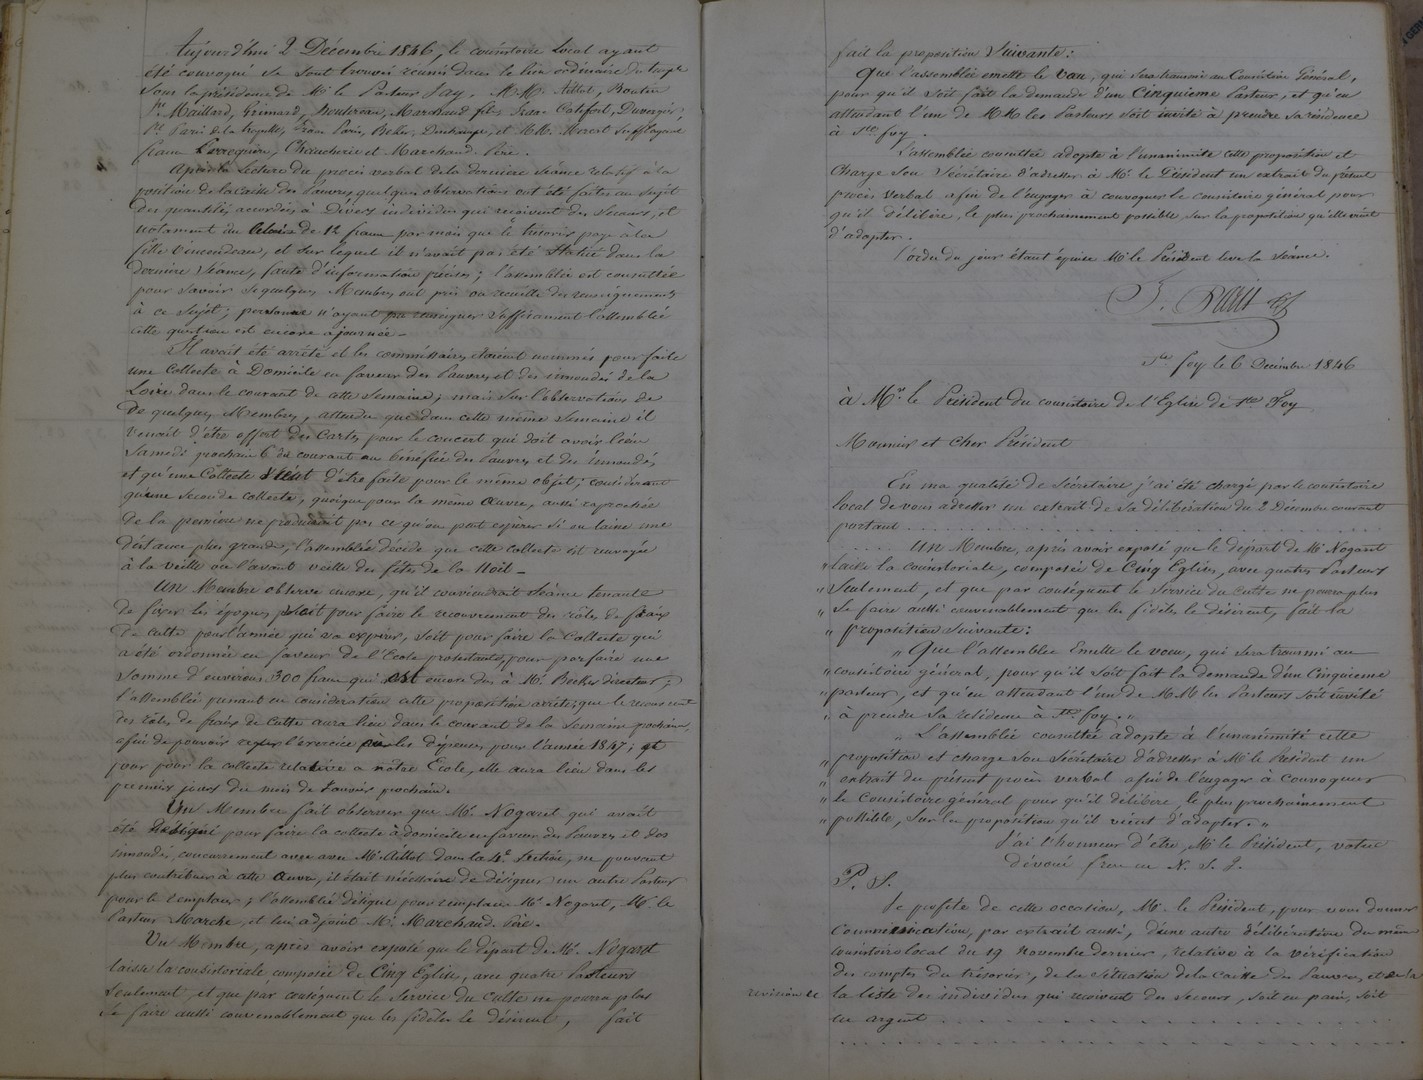 Aujourd'hui 2 Décembre 1846, le consistoire Local ayant
été convoqué se sont trouvés réunis dans le lieu ordinaire du temple
sous la présidence de Mr le Pasteur Pay, M.M. Aillot, Boutin
Maillard, Grimard, Marchand fils, Jean
Paris de la Jean Paris, et M.M. Mercat Suffragant
Jean Chaucherie et Marchand Père.
Après la Lecture du procès verbal de la dernière séance relatif à la
position de la caisse des Pauvres quelques observations ont été faites au sujet
des quantités accordées à Divers individus qui reçoivent des Secours, et
notament du de 12 francs par mois que le trésorier paye à la
fille Vincendeau, et sur lequel il n'avait pas été Statué dans la
dernière Séance, faute d'informations précises; l'assemblée est consultée
pour savoir si quelques Membres ont pris ou recueilli des renseignements
à ce Sujet; personne n'ayant pu renseigner suffisament l'assemblée
cette question est encore ajournée_
Il avait été arrêté et les commissaires étoient nommés pour faire
une Collecte à Domicile en faveur des Pauvres et des innondés de la
Loire dans le courant de cette Semaine; mais sur l'observations de
De quelques Membres, attendu que dans cette même Semaine il
venait d'être offert des Cartes pour le concert qui doit avoir lieu
Samedi prochain 6 du courant au bénéfice des Pauvres et des innondés,
et qu'une Collecte vient d'être faite pour le même objet; considérant
qu'une seconde collecte, quoique pour la même Œuvre, aussi raprochée
de la première ne produirait pas ce qu'on peut espérer si on laisse une
distance plus grande; l'assemblée décide que cette collecte est renvoyée
à la veille ou l'avant veille des fêtes de la Noël_
Un Membre observe encore, qu'il conviendrait séance tenante
de fixer les époques, soit pour faire le recouvrement des rôles de frais
de Culte pour l'année qui va expirer, soit pour faire la Collecte qui
a été ordonnée en faveur de l'Ecole protestante, pour parfaire une
somme d'environs 300 francs qui est encore dus à Mr. Becker directeur;
l'assemblée prenant en considération cette proposition arrête; que le recouvrement
des rôles de frais de Culte aura lieu dans le courant de la Semaine prochaine,
afin de pouvoir l'exercice les dépenses pour l'année 1847; et
que pour la collecte relative a nôtre Ecole, elle aura lieu dans les
premiers jours du mois de Janvier prochain.
Un Membre fait observer que Mr. Nogaret qui avait
été désigné pour faire la collecte à domicile en faveur des Pauvres et des
innondés, concurrement avec avec Mr. Aillot dans la 4e. Section, ne pouvant
plus contribuer à cette Œuvre, il était nécéssaire de désigner un autre Pasteur
pour le remplacer; l'assemblée désigne pour remplacer Mr. Nogaret, Mr. le
Pasteur Marche, et lui adjoint Mr. Marchand Père.
Un Membre, après avoir exposé que le départ de Mr. Nogaret
laisse la consistoriale composée de Cinq Eglises, avec quatre Pasteurs
seulement, et que par conséquent le Service du Culte ne pourra plus
se faire aussi convenablement que les fidèles le désirent, fait
fait la proposition Suivante:
Que l'assemblée émette le vœu, qui sera transmis au Consistoire Général,
pour qu'il soit fait la demande d'un Cinquieme Pasteur, et qu'en
attendant l'un de MM les Pasteurs soit invité à prendre sa résidence
à Ste. foy.
L'assemblée consultée adopte à l'unanimité cette proposition et
Charge Son Secrétaire d'adresser à Mr. le Président un extrait du présent
procès verbal afin de l'engager à convoquer le consistoire général pour
qu'il délibère, le plus prochainement possible, sur la proposition qu'elle vient
d'adopter.
L'ordre du jour étant épuisé Mr le Président leve la Séance.
Ste foy le 6 Décembre 1846
à Mr. le Président du consistoire de l'Eglise de Ste Foy
Monsieur et Cher Président
En ma qualité de Sécrétaire j'ai été chargé par le consistoire
local de vous adresser un extrait de sa délibération du 2 Décembre courant
portant . . . . . . . . . . . . . . . . . . .
. . . . Un Membre, après avoir exposé que le départ de Mr Nogaret
" laisse la consistoriale, composée de Cinq Eglises, avec quatre Pasteurs
" Seulement, et que par conséquent le service du Culte ne pourra plus
" se faire aussi convenablement que les fidèles le désirent, fait la
" proposition suivante:
" Que l'assemblée Emette le vœu, qui sera transmi au
" consistoire général, pour qu'il soit fait la demande d'un Cinquieme
" pasteur, et qu'en attendant l'un de M.M les Pasteurs soit invité
" à prendre Sa résidence à Ste. foy. "
" L'assemblée consultée adopte à l'unanimité cette
" proposition et charge son Sécrétaire d'adresser à Mr le Président un
" extrait du présent procès verbal afin de l'engager à Convoquer
" le Consistoire général pour qu'il délibère, le plus prochainement
" possible, sur la proposition qu'il vient d'adopter. "
J'ai l'honneur d'être, Mr le Président, votre
dévoué frère en N. S. J.
P. S.
Je profite de cette occasion, Mr. le Président, pour vous donner
Communication, par extrait aussi, d'une autre délibération du même
Consistoire local du 19 Novembre dernier, relative à la vérification
des comptes du trésorier, de la situation de la Caisse des Pauvres, et de la
revision de la liste des individus qui reçoivent des secours, soit en pain, soit
en argent . . . . . . . . . . . . . . . .
. . . . . . . . . . . . . . . . . . .